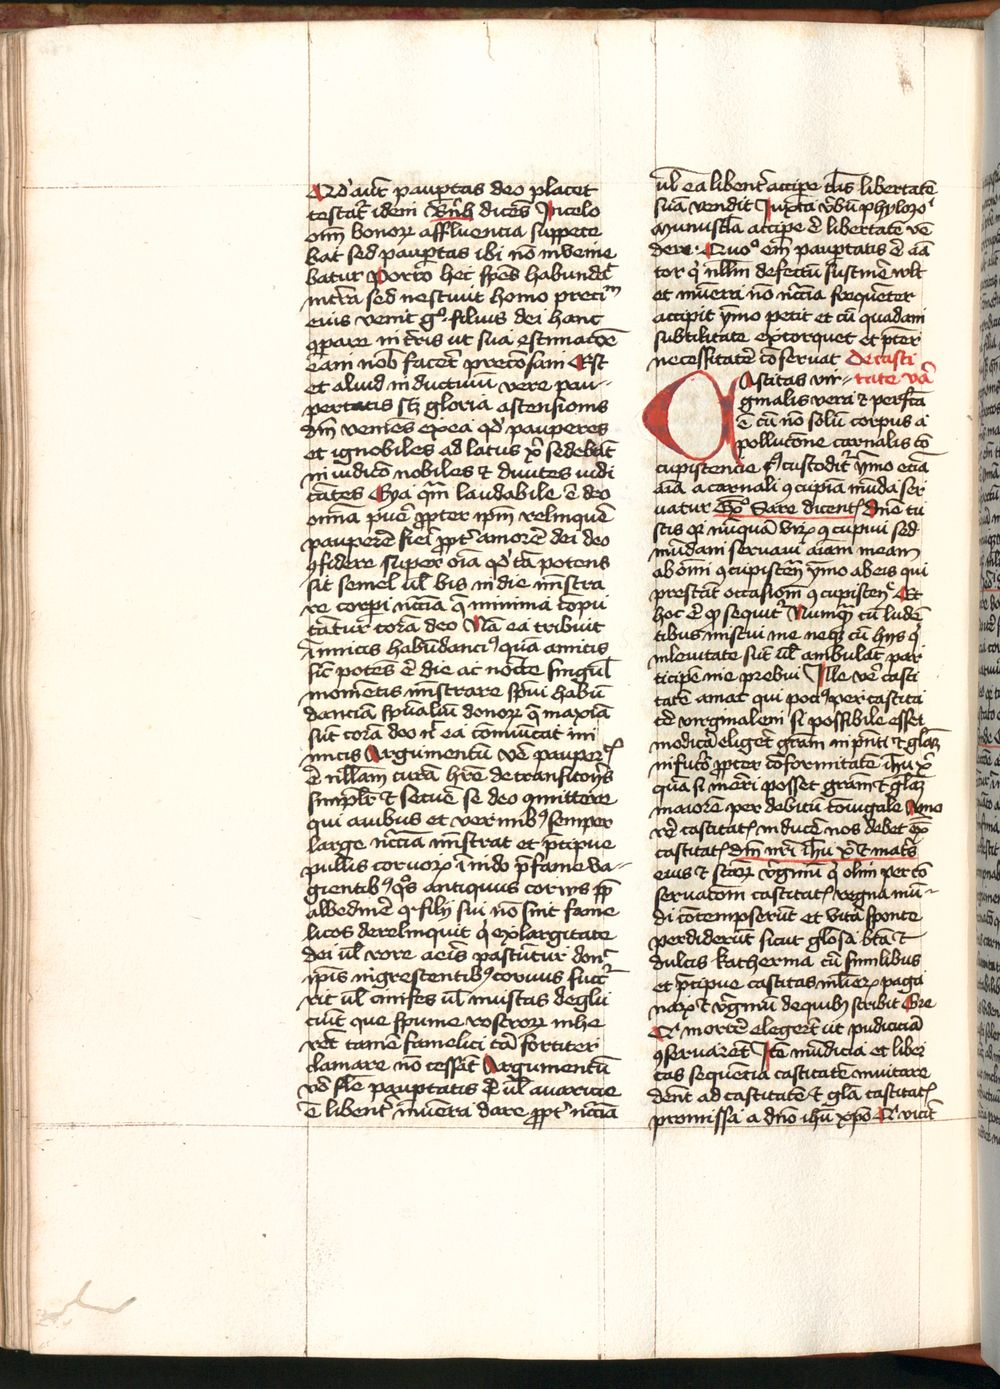 Qd' aut paupertas deo placet
testat' idem B'nh dicens In celo
omn bonorum affluencia suppete
bat sed paupertas ibi no invenie
batur Porro hec spes habundat
in terra sed nesciuit homo precium
eius venit g° filius dei hanc
querere in terris ut sua estimacoe
eam nob faceret preciosam Est
et aliud inductiuu vere pau-
pertatis scz gloria ascensionis
dm veniens ex ea qd pauperes
et ignobiles ad latus xpi sedebut
in iudicio nobiles et diuites iudi
cates Eya qm laudabile e deo
omia pure propter ipm relinquere
pauperem fieri propt' amore dei deo
confidere super oia qd' ta potens
sit semel ul' bis in die ministra
re corpori necessaria que minima compu
tatur cora deo Nam ea tribuit
inimicis habundancius quam amicis
sic potens e die ac nocte singul'
momentis ministrare spui habun
danciam spualiu donorum que maxia
sut cora deo nec ea comuicat ini
micis Argumentu vere paupertatis
e nullam curam habere de transitoriis
simpliciter et secure se deo committere
qui auibus et vermibus semper
large necessaria ministrat et precipue
pullis coruorum in nido pre fame va-
gientibus quos antiquus corvus propter
albedinem quasi filii sui non sint fame
licos derelinquit qui ex largitate
dei ul' rore aeris pascuntur donec
ipsis nigrescentibus coruus
ul' cinifes ul' muscas deglu
ciut que spume rostrorum inhe
ret tamen famelici tam fortiter
clamare no cessat Argumentu
vo false paupertatis e ul' auaricie
e libent' munera dare propt' necessaria
ul' ea libent' accipe talis libertate
sua vendit Juxta verbu phylozo'
Munuscula accipe e libertate ven
dere Quo' em paupertatis e ama
tor qui nullum defectu sustinere vult
et munera no necessaria frequenter
accipit ymo petit et cu quadam
subtilitate extorquet et preter
necessitate conseruat De casti
tate vera
Castitas vir-
ginalis vera et perfecta
e cu no solu corpus a
pollucione carnalis con
cupiscencie custoditur ymo etia
aia a carnali concupiscencia munda ser
uatur Exo Sare dicentis Dne tu
scis quia nunqua viru concupiui sed
mundam seruaui aiam meam
ab omni concupiscencia ymo ab eis qui
prestat occasionem concupiscencie Et
hoc e quod sequitur Numquam cum luden
tibus miscui me neque cum hiis qui
in leuitate sut ul' ambulat par
ticipe me prebui Ille vere casti
tate amat qui pocius per castita
te virginalem si possibile esset
modica eligeret gram in presenti et glam
in futuro propter conformitate ihu xpi
qua si mereri posset gram et glam
maiorem per debitum coniugale Ymo
vere castitatis inducere nos debet exemplum
castitatis dm nri ihu xpi et matris
eius et sanctorum virginum qui olim per con
seruacom castitatis regna mun-
di contempserut et vita sponte
perdiderut sicut gloriosa beata et
dulcis katherina cu similibus
et precipue castitas mulierum paga
narum et virginum de quibus scribit Gre
quod mortem elegeret ut pudiciciam
conseruaret Item mundicia et liber
tas sequencia castitatem inuitare
debent ad castitatem et gloria castitatis
promissa a dno ihu xpo Qui vicerit